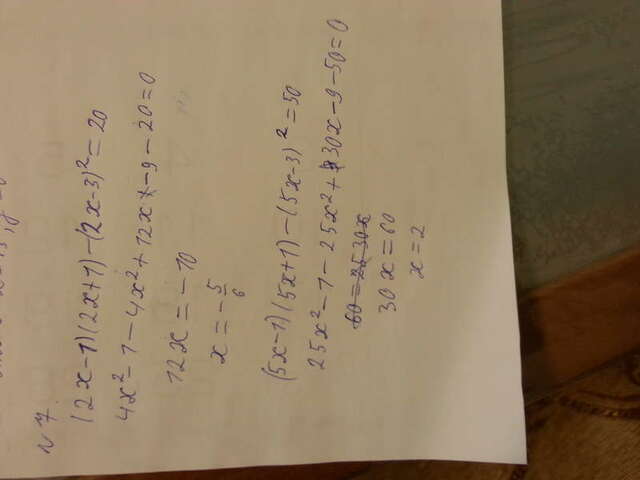 N7.
(2x-1)(2x+1)-(2x-3)²=20
4x²-1-4x²+12x-9-20=0
12x=-10
x=-5/6
(5x-1)(5x+1)-(5x-3)²=50
25x²-1-25x²+30x-9-50=0
60=25 30x
30x=60
x=2